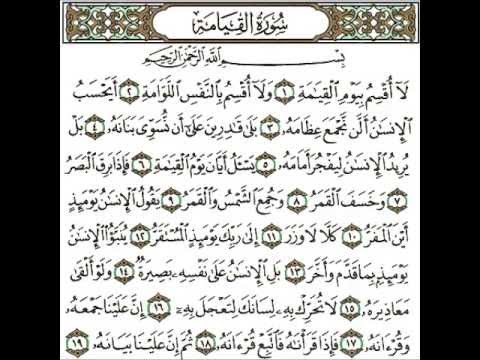 سُورَةُ الْقِيَامَةِ
بِسْمِ اللَّهِ الرَّحْمَٰنِ الرَّحِيمِ
لَآ أُقْسِمُ بِيَوْمِ الْقِيَٰمَةِ ١ وَلَآ أُقْسِمُ بِالنَّفْسِ اللَّوَّامَةِ ٢ أَيَحْسَبُ
الْإِنسَٰنُ أَلَّن نَّجْمَعَ عِظَامَهُۥ ٣ بَلَىٰ قَٰدِرِينَ عَلَىٰٓ أَن نُّسَوِّىَ بَنَانَهُۥ ٤ بَلْ
يُرِيدُ الْإِنسَٰنُ لِيَفْجُرَ أَمَامَهُۥ ٥ يَسْـَٔلُ أَيَّانَ يَوْمُ الْقِيَٰمَةِ ٦ فَإِذَا بَرِقَ الْبَصَرُ
٧ وَخَسَفَ الْقَمَرُ ٨ وَجُمِعَ الشَّمْسُ وَالْقَمَرُ ٩ يَقُولُ الْإِنسَٰنُ يَوْمَئِذٍ
أَيْنَ الْمَفَرُّ ١٠ كَلَّا لَا وَزَرَ ١١ إِلَىٰ رَبِّكَ يَوْمَئِذٍ الْمُسْتَقَرُّ ١٢ يُنَبَّؤُا۟ الْإِنسَٰنُ
يَوْمَئِذٍۭ بِمَا قَدَّمَ وَأَخَّرَ ١٣ بَلِ الْإِنسَٰنُ عَلَىٰ نَفْسِهِۦ بَصِيرَةٌ ١٤ وَلَوْ أَلْقَىٰ
مَعَاذِيرَهُۥ ١٥ لَا تُحَرِّكْ بِهِۦ لِسَانَكَ لِتَعْجَلَ بِهِۦٓ ١٦ إِنَّ عَلَيْنَا جَمْعَهُۥ
وَقُرْءَانَهُۥ ١٧ فَإِذَا قَرَأْنَٰهُ فَاتَّبِعْ قُرْءَانَهُۥ ١٨ ثُمَّ إِنَّ عَلَيْنَا بَيَانَهُۥ ١٩